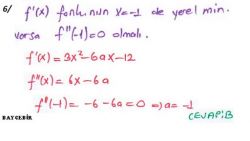 6/ f'(x) fonk.nun x=-1 de yerel min.
varsa f''(-1)=0 olmalı.
f'(x)=3x²-6ax-12
f''(x)=6x-6a
f''(-1)=-6-6a=0 ⇒ a=-1
BAYGEBİR CEVAP:B